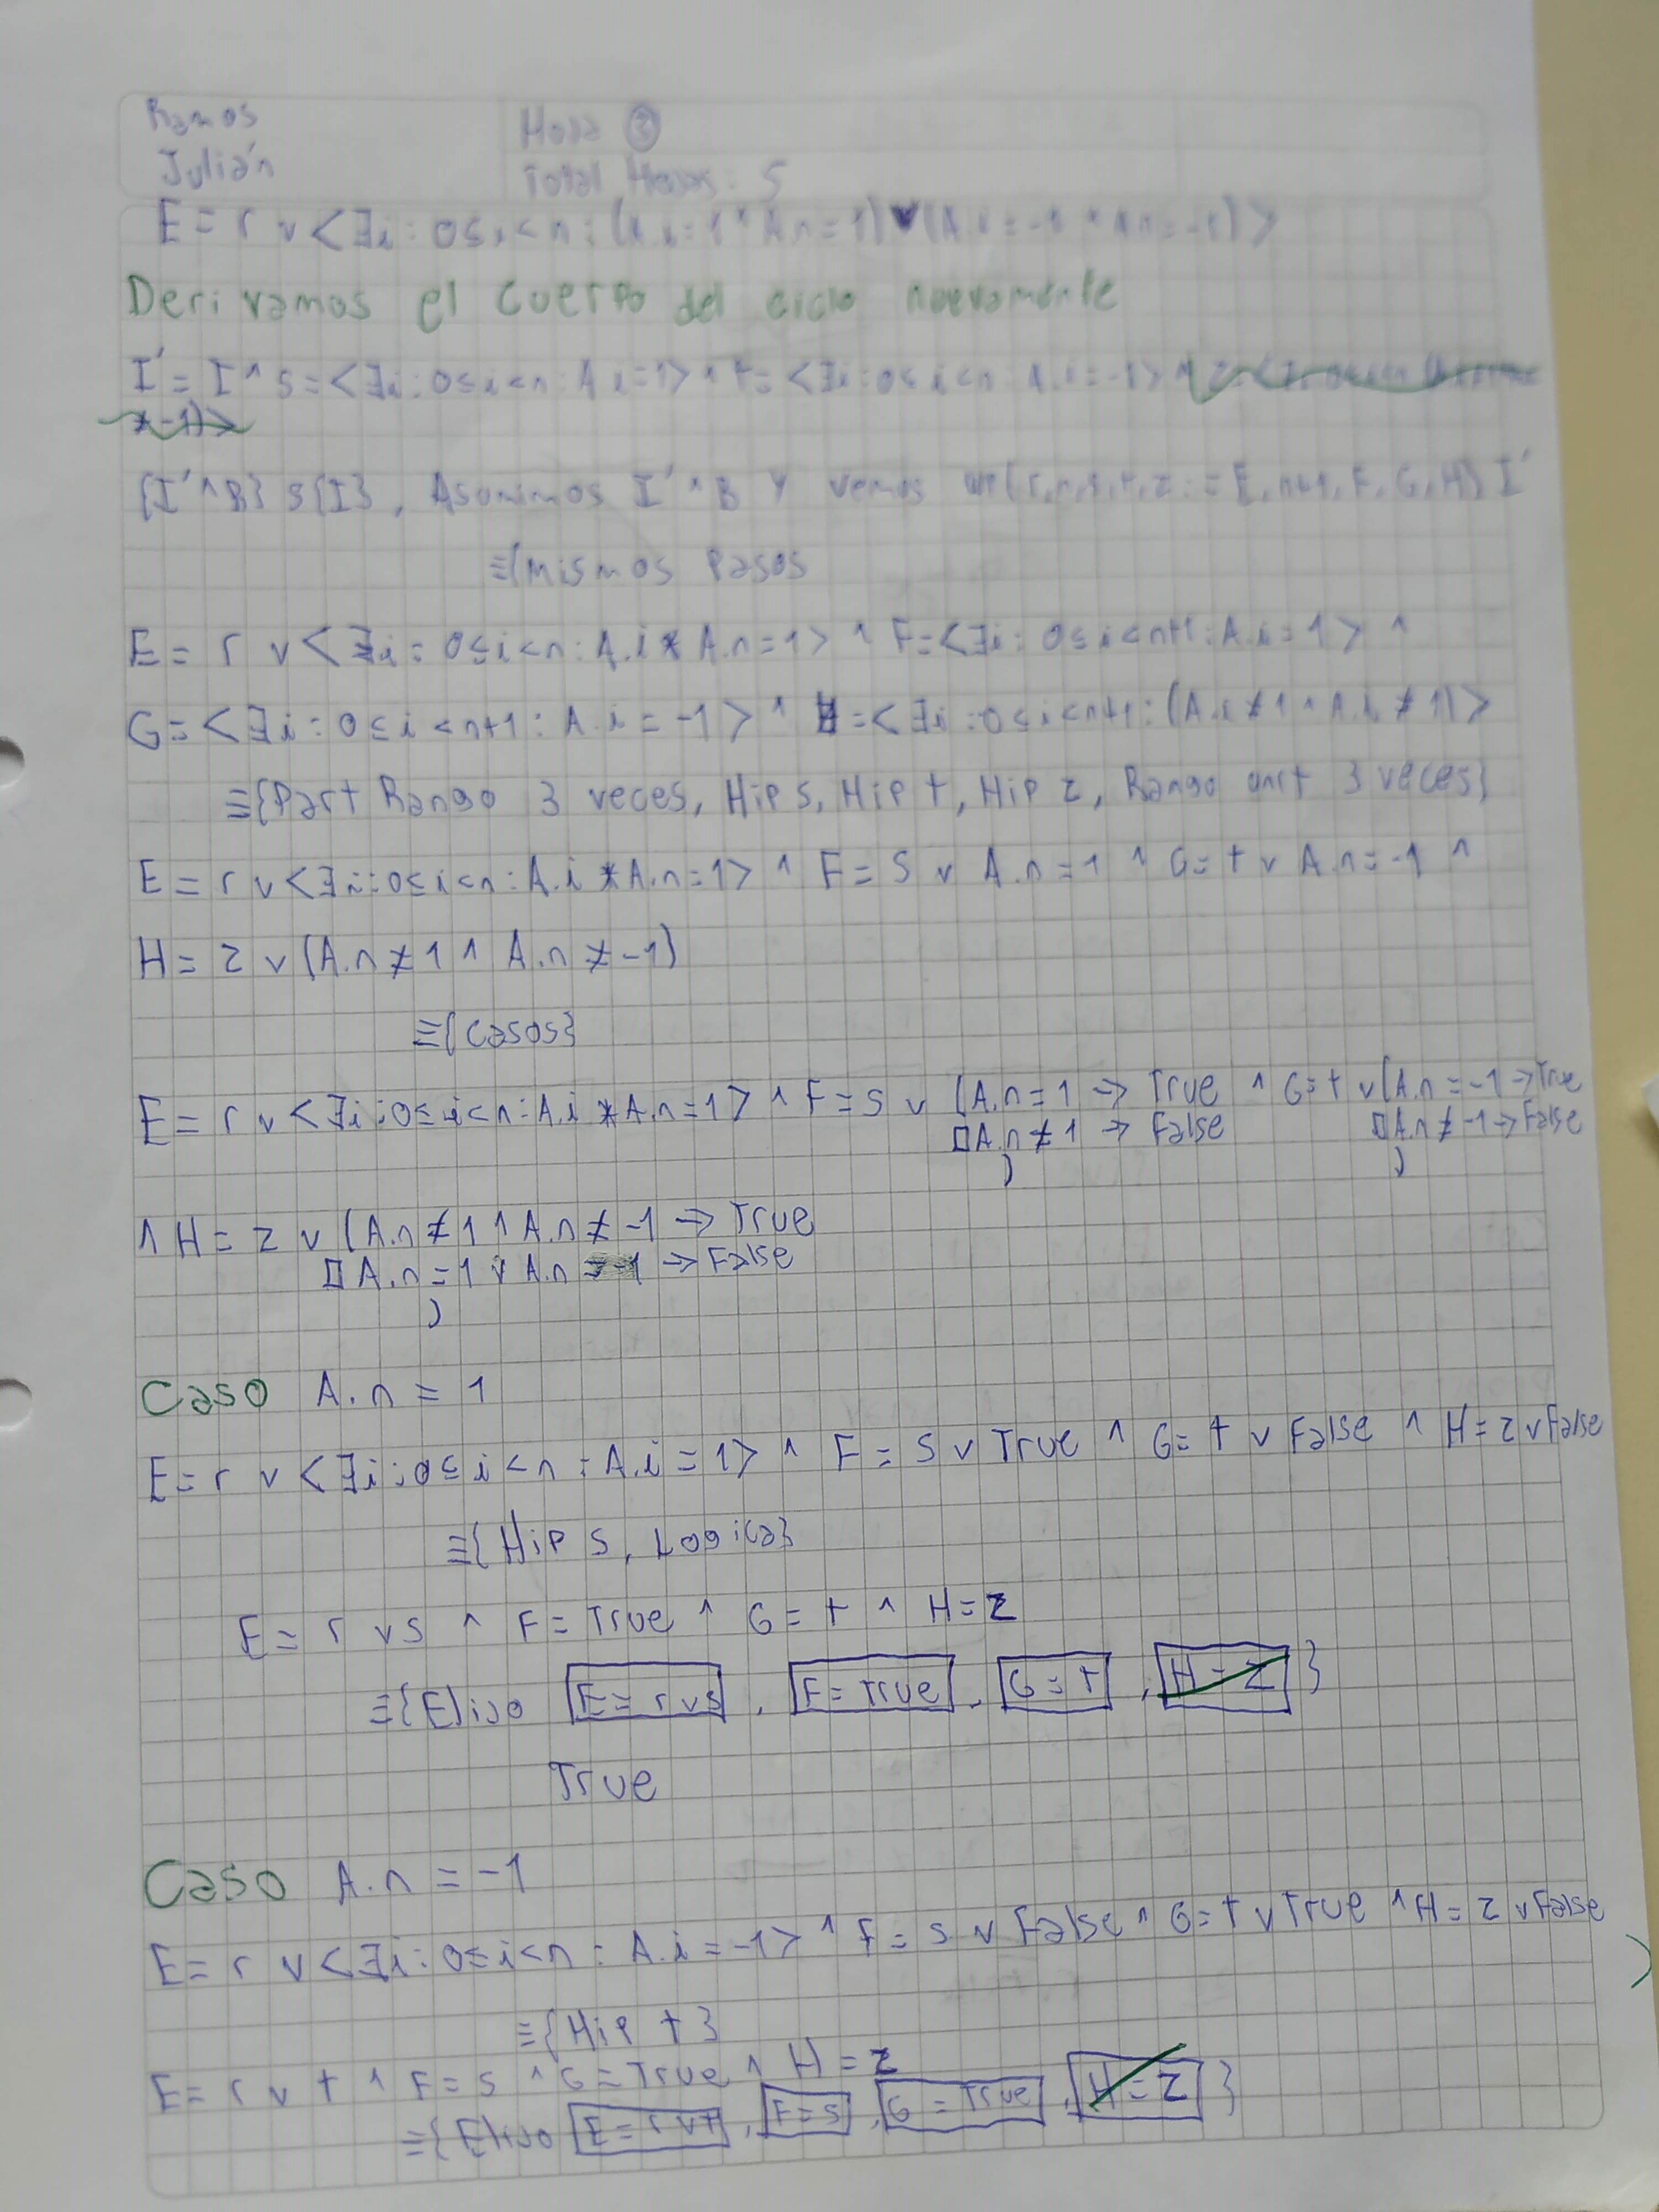 Ramos
Julián
Hoja ③
Total Hojas: 5
E = r ∨ <∃i : 0≤i<n : (A.i=1 * A.n=1) ∨ (A.i=-1 * A.n=-1)>
Derivamos el cuerpo del ciclo nuevamente
I' = I ^ s=<∃i : 0≤i<n : A.i=1> ^ t=<∃i : 0≤i<n : A.i=-1> ^
≠-1)>
{I' ^ B} S {I}, Asumimos I' ^ B y vemos wp(r,n,s,t,z := E,n+1,F,G,H) I'
≡{mismos pasos
E = r ∨ <∃i : 0≤i<n : A.i * A.n=1> ^ F=<∃i : 0≤i<n+1 : A.i=1> ^
G=<∃i : 0≤i<n+1 : A.i=-1> ^ H=<∃i : 0≤i<n+1 : (A.i≠1 ^ A.i≠1)>
≡{Part Rango 3 veces, Hip s, Hip t, Hip z, Rango unit 3 veces}
E = r ∨ <∃i : 0≤i<n : A.i * A.n=1> ^ F = S ∨ A.n=1 ^ G=t ∨ A.n=-1 ^
H = z ∨ (A.n≠1 ^ A.n≠-1)
≡{casos}
E = r ∨ <∃i : 0≤i<n : A.i * A.n=1> ^ F=S ∨ (A.n=1 → True ^ G=t ∨ (A.n=-1 → True
▯A.n≠1 → False ▯A.n≠-1 → False
) )
^ H = z ∨ (A.n≠1 ^ A.n≠-1 → True
▯A.n=1 ∨ A.n=-1 → False
)
Caso A.n = 1
E = r ∨ <∃i : 0≤i<n : A.i=1> ^ F = S ∨ True ^ G=t ∨ False ^ H=z ∨ False
≡{Hip s, Logica}
E = r ∨ s ^ F=True ^ G=t ^ H=z
≡{Elijo E=r∨s, F=True, G=t, H=z}
True
Caso A.n = -1
E = r ∨ <∃i : 0≤i<n : A.i=-1> ^ F=s ∨ False ^ G=t ∨ True ^ H=z ∨ False
≡{Hip t}
E = r ∨ t ^ F=s ^ G=True ^ H=z
≡{Elijo E=r∨t, F=s, G=True, H=z}